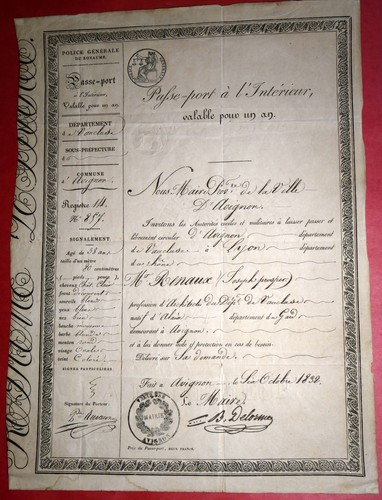 POLICE GÉNÉRALE
DU ROYAUME.
Passe-port
à l'Intérieur,
Valable pour un an.
DÉPARTEMENT
de Vaucluse
SOUS-PRÉFECTURE
COMMUNE
d'Avignon
Registre 14
N.º 857
SIGNALEMENT
Age de 38 ans
taille d'un mètre
centimètres
cheveux Chât. Clair
front
sourcils blonds
yeux bleus
nez bien
bouche moyenne
barbe blonde
menton rond
visage ovale
teint Coloré
SIGNES PARTICULIERS
Signature du Porteur :
Passe-port à l'Intérieur,
valable pour un an.
Nous Maire de la Ville
D'Avignon
Invitons les Autorités civiles et militaires à laisser passer et
librement circuler d'Avignon département
de Vaucluse à département
de
Mr Renaux (Joseph prosper)
profession d'Architecte du Dépt. de Vaucluse
natif d'Alais département du Gard
demeurant à Avignon
et à lui donner aide et protection en cas de besoin.
Délivré sur Sa demande
Fait à Avignon le Six Octobre 1832
Le Maire
MAIRIE
AVIGNON
Prix du Passeport, DEUX FRANCS.